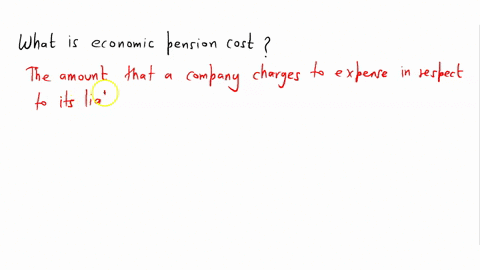 What is economic pension cost ?
The amount that a company charges to expense in respect
to its lia